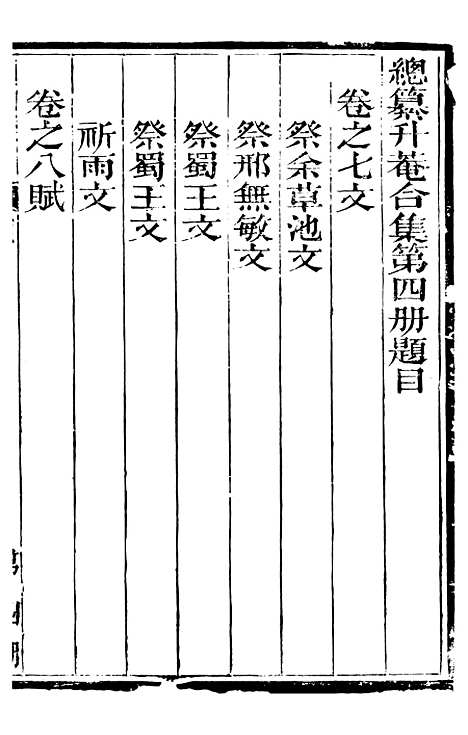 總纂升菴合集第四册題目
卷之七文
祭余草池文
祭邢無敏文
祭蜀王文
祭蜀王文
祈雨文
卷之八賦